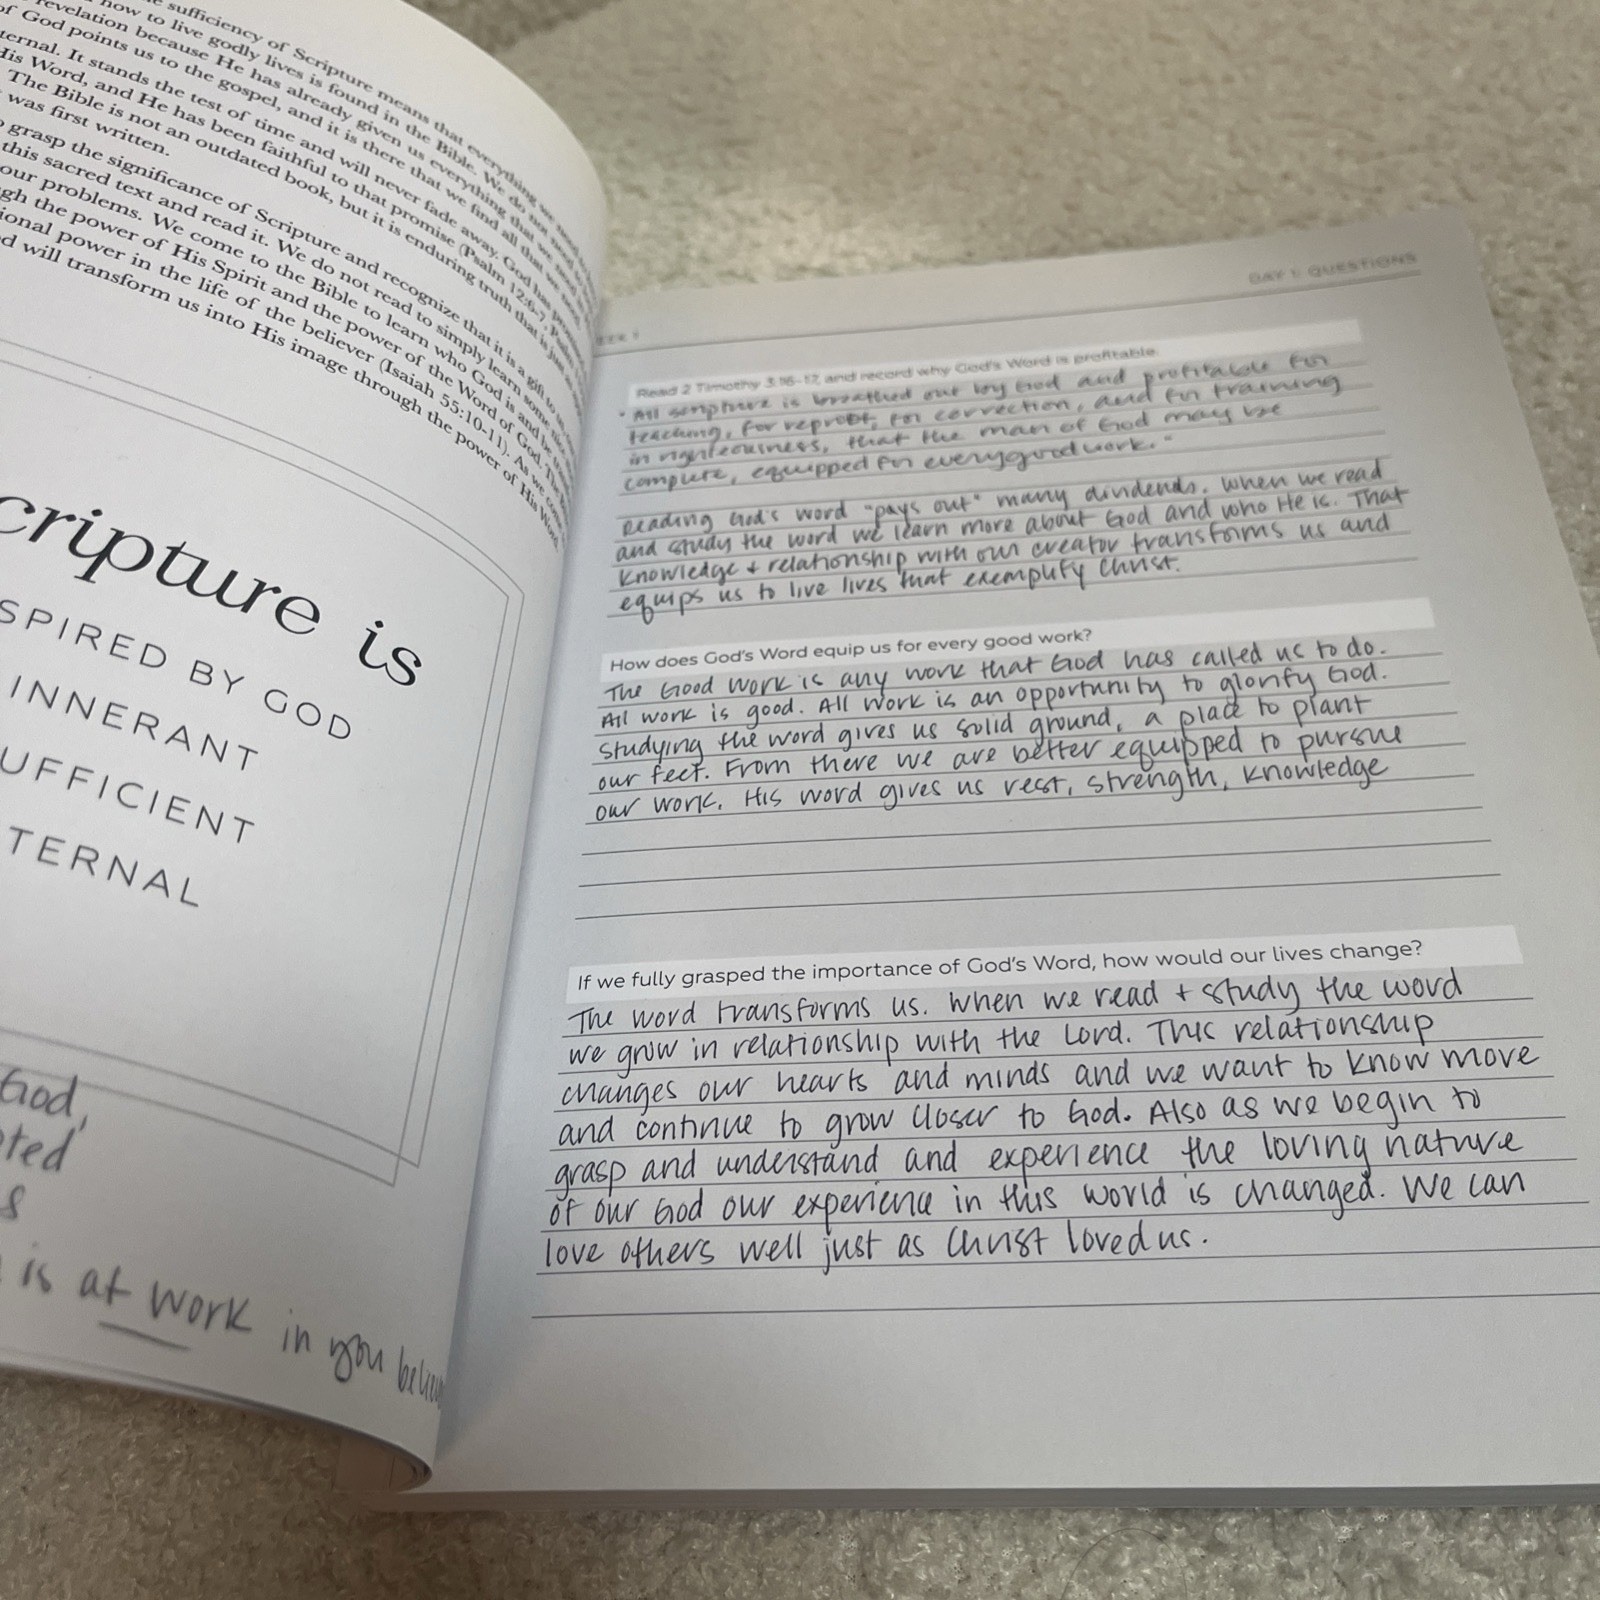 sufficiency of Scripture means that everything we need
how to live godly lives is found in the Bible. We do not need
revelation because He has already given us everything that we need
of God points us to the gospel, and it is there that we find all that we need.
ternal. It stands the test of time and will never fade away. God has
His Word, and He has been faithful to that promise (Psalm 12:6-7, Psalm
The Bible is not an outdated book, but it is enduring truth that is just as
was first written.
grasp the significance of Scripture and recognize that it is a gift to us,
this sacred text and read it. We do not read to simply learn some
our problems. We come to the Bible to learn who God is and be
gh the power of His Spirit and the power of the Word of God. The
ional power in the life of the believer (Isaiah 55:10-11). As we come
d will transform us into His image through the power of His Word.
cripture is
SPIRED BY GOD
INNERANT
UFFICIENT
TERNAL
God,
is at work in you
DAY 1: QUESTIONS
Read 2 Timothy 3:16-17, and record why God's Word is profitable.
"All scripture is breathed out by God and profitable for
teaching, for reproof, for correction, and for training
in righteousness, that the man of God may be
complete, equipped for every good work."
Reading God's word "pays out" many dividends. When we read
and study the word we learn more about God and who He is. That
knowledge + relationship with our creator transforms us and
equips us to live lives that exemplify Christ.
How does God's Word equip us for every good work?
The Good work is any work that God has called us to do.
All work is good. All work is an opportunity to glorify God.
Studying the word gives us solid ground, a place to plant
our feet. From there we are better equipped to pursue
our work. His word gives us rest, strength, knowledge
If we fully grasped the importance of God's Word, how would our lives change?
The word transforms us. When we read + study the word
we grow in relationship with the Lord. This relationship
changes our hearts and minds and we want to know more
and continue to grow closer to God. Also as we begin to
grasp and understand and experience the loving nature
of our God our experience in this world is changed. We can
love others well just as Christ loved us.